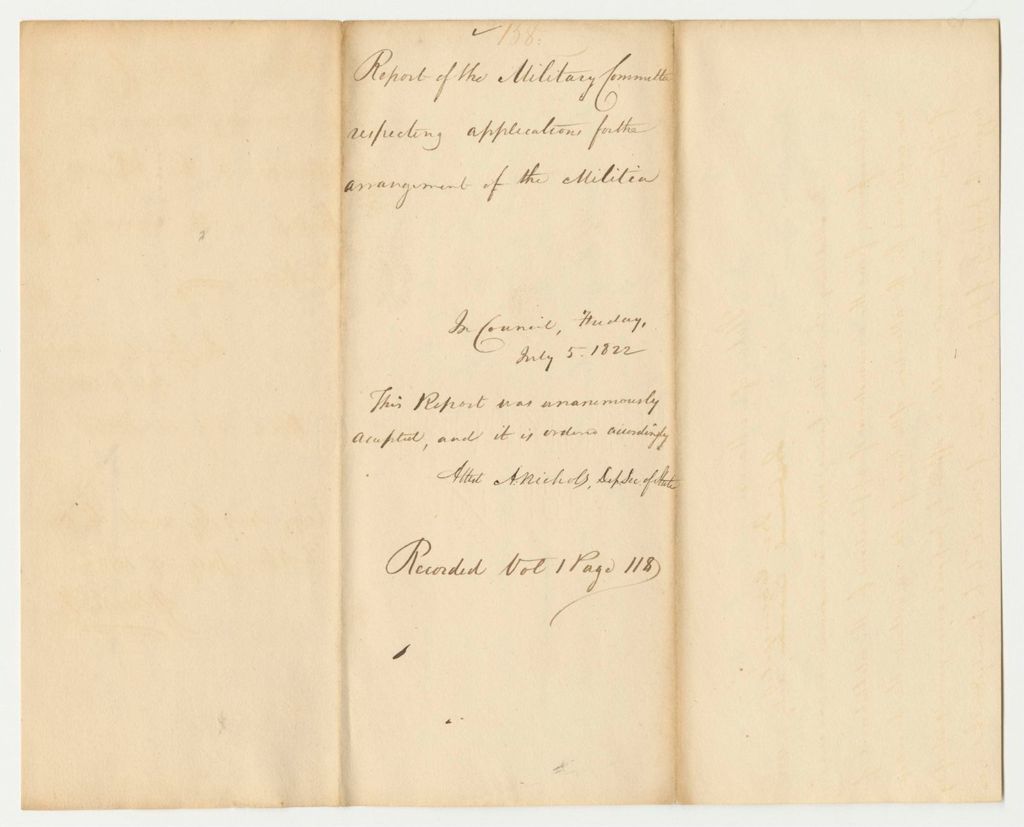 138.
Report of the Military Committe
respecting applications for the
arrangement of the Militia
In Council, Friday,
July 5. 1822
This Report was unanemously
accepted, and it is ordered accordingly
Attest A. Nichols, Dep Sec of State
Recorded Vol 1 Page 118